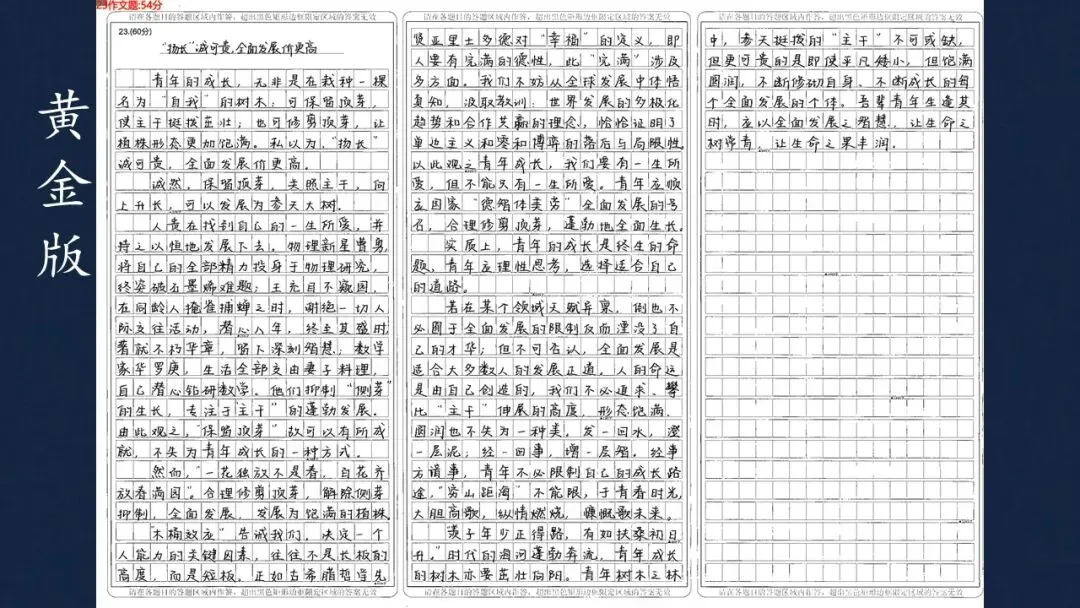 23作文题:54分
黄金版
请在各题目的答题区域内作答，超出黑色矩形边框限定区域的答案无效
23.(60分)
"扬长"诚可贵,全面发展价更高
青年的成长，无非是在栽种一棵
名为"自我"的树木：可保留顶芽，
使主干挺拔茁壮；也可修剪顶芽，让
植株形态更加饱满。私以为，"扬长"
诚可贵，全面发展价更高。
诚然，保留顶芽，关照主干，向
上升长，可以发展为参天大树。
人贵在找到自己的一生所爱，并
持之以恒地发展下去。物理新星曹原
将自己的全部精力投身于物理研究，
终突破石墨烯难题；王充目不窥园，
在同龄人掩雀捕蝉之时，谢绝一切人
际交往活动，潜心八年，终至其盛时
著就不朽华章，留下深刻智慧；数学
家华罗庚，生活全部交由妻子料理，
自己潜心钻研数学。他们抑制"侧芽"
的生长，专注于"主干"的蓬勃发展。
由此观之，"保留顶芽"故可以有所成
就，不失为青年成长的一种方式。
然而，"一花独放不是春，百花齐
放春满园"。合理修剪顶芽，解除侧芽
抑制，全面发展，发展为饱满的植株。
"木桶效应"告诫我们，决定一个
人能力的关键因素，往往不是长板的
高度，而是短板。正如古希腊哲学先
请在各题目的答题区域内作答，超出黑色矩形边框限定区域的答案无效
请在各题目的答题区域内作答，超出黑色矩形边框限定区域的答案无效
贤亚里士多德对"幸福"的定义，即
人要有完满的德性，此"完满"涉及
多方面。我们不妨从全球发展中体悟
真知，汲取教训：世界发展的多极化
趋势和合作共赢的理念，恰恰证明了
单边主义和零和博弈的落后与局限性。
以此观之青年成长，我们要有一生所
爱，但不能只有一生所爱。青年应顺
应国家"德智体美劳"全面发展的号
召，合理修剪顶芽，蓬勃地全面生长。
实质上，青年的成长是终生的命
题，青年应理性思考，选择适合自己
的道路。
若在某个领域天赋异禀，倒也不
必囿于全面发展的限制反而湮没了自
己的才华；但不可否认，全面发展是
适合大多数人的发展正道。人的命运
是由自己创造的，我们不必追求、攀
比"主干"伸展的高度，形态饱满、
圆润也不失为一种美。发一回水，澄
一层泥；经一回事，增一层智。经事
方谙事，青年不必限制自己的成长路
途，"穷山距海"不能限，于青春时光，
大胆高歌，纵情燃烧，慷慨歌未来。
美子年少正得路，有如扶桑初日
升。"时代的海河蓬勃奔流，青年成长
的树木亦要茁壮向阳。青年树木之林
请在各题目的答题区域内作答，超出黑色矩形边框限定区域的答案无效
请在各题目的答题区域内作答，超出黑色矩形边框限定区域的答案无效
中，参天挺拔的"主干"不可或缺，
但更可贵的是即使平凡矮小，但饱满
圆润，不断修动自身、不断成长的每
个全面发展的个体。吾辈青年生逢其
时，应以全面发展之智慧，让生命之
树常青，让生命之果丰润。
请在各题目的答题区域内作答，超出黑色矩形边框限定区域的答案无效